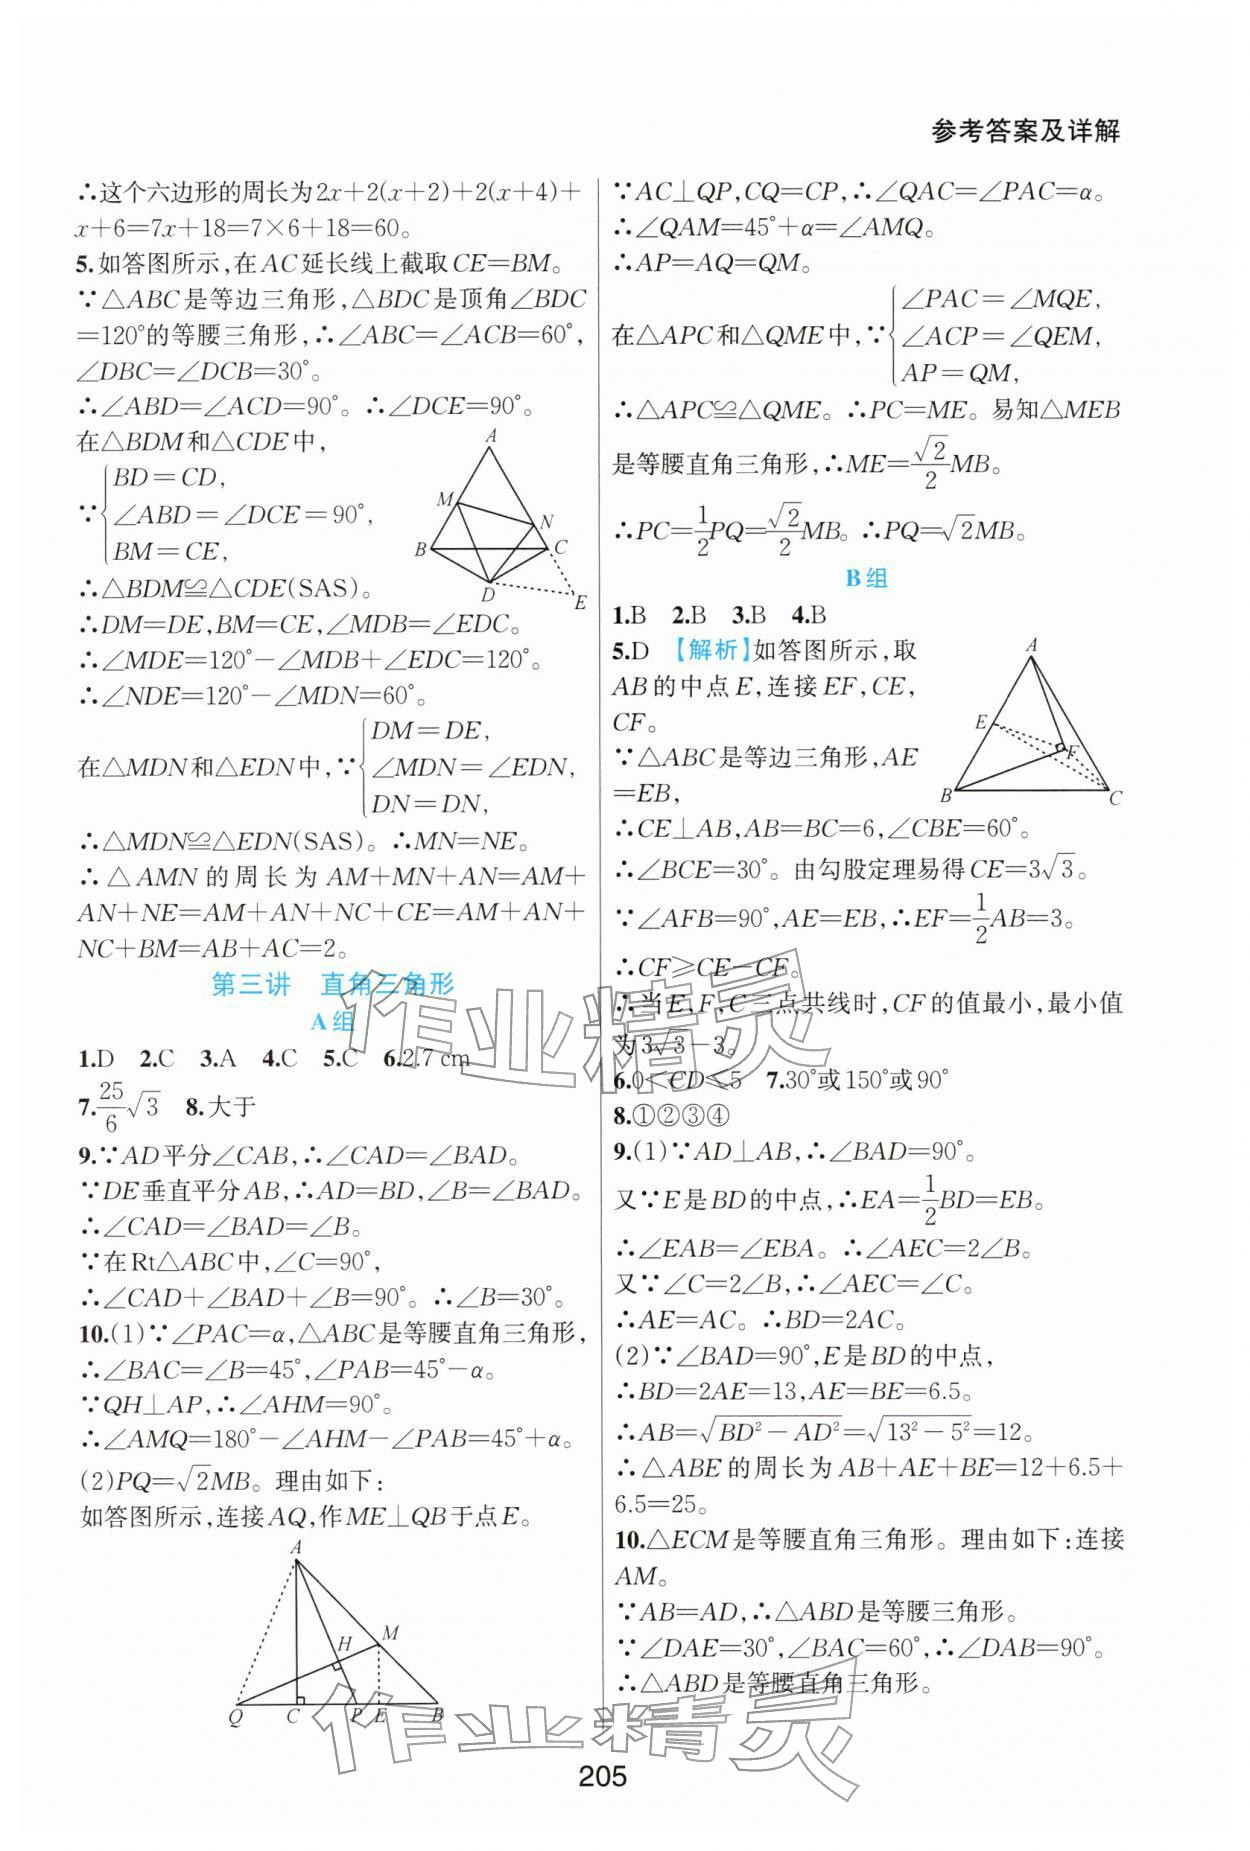 参考答案及详解
∴这个六边形的周长为2x+2(x+2)+2(x+4)+
x+6=7x+18=7×6+18=60。
5.如答图所示,在AC延长线上截取CE=BM。
∵△ABC是等边三角形,△BDC是顶角∠BDC
=120°的等腰三角形,∴∠ABC=∠ACB=60°,
∠DBC=∠DCB=30°。
∴∠ABD=∠ACD=90°。∴∠DCE=90°。
在△BDM和△CDE中,
BD=CD,
∵ ∠ABD=∠DCE=90°,
BM=CE,
A
M
N
B
C
D
E
∴△BDM≌△CDE(SAS)。
∴DM=DE,BM=CE,∠MDB=∠EDC。
∴∠MDE=120°-∠MDB+∠EDC=120°。
∴∠NDE=120°-∠MDN=60°。
DM=DE,
在△MDN和△EDN中,∵ ∠MDN=∠EDN,
DN=DN,
∴△MDN≌△EDN(SAS)。∴MN=NE。
∴△AMN的周长为AM+MN+AN=AM+
AN+NE=AM+AN+NC+CE=AM+AN+
NC+BM=AB+AC=2。
第三讲 直角三角形
A组
1.D 2.C 3.A 4.C 5.C 6.2.7 cm
7.25/6√3 8.大于
9.∵AD平分∠CAB,∴∠CAD=∠BAD。
∵DE垂直平分AB,∴AD=BD,∠B=∠BAD。
∴∠CAD=∠BAD=∠B。
∵在Rt△ABC中,∠C=90°,
∴∠CAD+∠BAD+∠B=90°。∴∠B=30°。
10.(1)∵∠PAC=α,△ABC是等腰直角三角形,
∴∠BAC=∠B=45°,∠PAB=45°-α。
∵QH⊥AP,∴∠AHM=90°。
∴∠AMQ=180°-∠AHM-∠PAB=45°+α。
(2)PQ=√2MB。理由如下:
如答图所示,连接AQ,作ME⊥QB于点E。
A
H
M
Q
C
P
E
B
∵AC⊥QP,CQ=CP,∴∠QAC=∠PAC=α。
∴∠QAM=45°+α=∠AMQ。
∴AP=AQ=QM。
∠PAC=∠MQE,
在△APC和△QME中,∵ ∠ACP=∠QEM,
AP=QM,
∴△APC≌△QME。∴PC=ME。易知△MEB
是等腰直角三角形,∴ME=√2/2MB。
∴PC=1/2PQ=√2/2MB。∴PQ=√2MB。
B组
1.B 2.B 3.B 4.B
5.D 【解析】如答图所示,取
AB的中点E,连接EF,CE,
CF。
∵△ABC是等边三角形,AE
=EB,
A
E
F
B
C
∴CE⊥AB,AB=BC=6,∠CBE=60°。
∴∠BCE=30°。由勾股定理易得CE=3√3。
∵∠AFB=90°,AE=EB,∴EF=1/2AB=3。
∴CF≥CE-EF。
∴当E,F,C三点共线时,CF的值最小,最小值
为3√3-3。
6.0<CD≤5 7.30°或150°或90°
8.①②③④
9.(1)∵AD⊥AB,∴∠BAD=90°。
又∵E是BD的中点,∴EA=1/2BD=EB。
∴∠EAB=∠EBA。∴∠AEC=2∠B。
又∵∠C=2∠B,∴∠AEC=∠C。
∴AE=AC。∴BD=2AC。
(2)∵∠BAD=90°,E是BD的中点,
∴BD=2AE=13,AE=BE=6.5。
∴AB=√(BD²-AD²)=√(13²-5²)=12。
∴△ABE的周长为AB+AE+BE=12+6.5+
6.5=25。
10.△ECM是等腰直角三角形。理由如下:连接
AM。
∵AB=AD,∴△ABD是等腰三角形。
∵∠DAE=30°,∠BAC=60°,∴∠DAB=90°。
∴△ABD是等腰直角三角形。
作业精灵
作业精灵
205